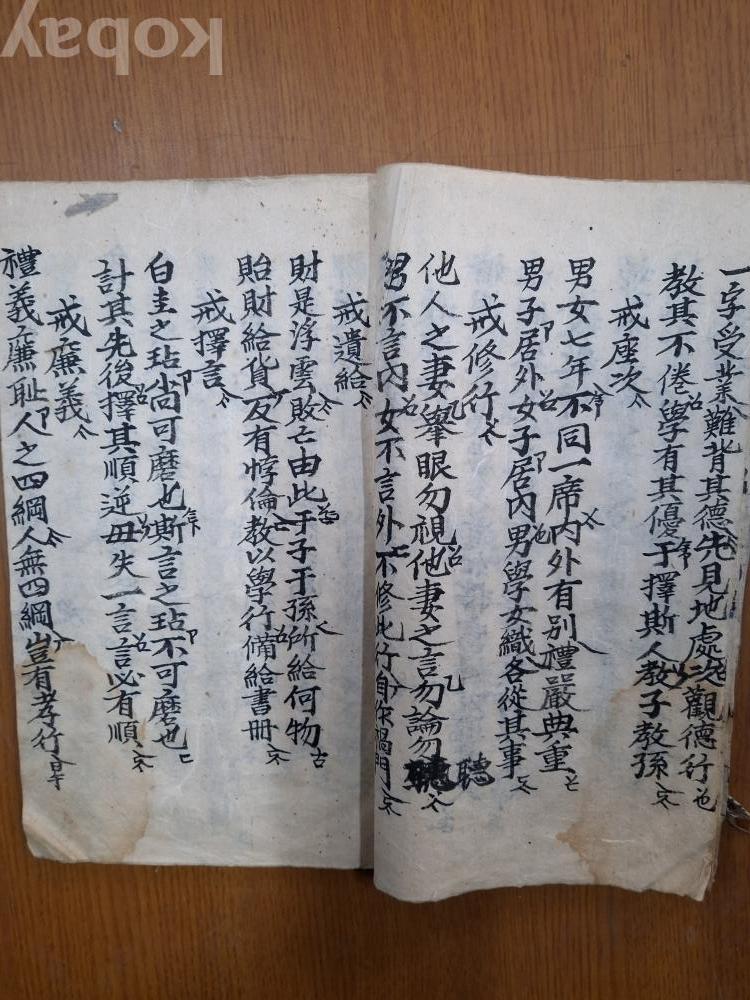 kobay
一字受業難背其德先見地處次觀德行
教其不倦學有其優于擇斯人教子教孫
戒座次
男女七年不同一席內外有別禮嚴典重
男子居外女子居內男學女織各從其事
戒修行
他人之妻擧眼勿視他妻之言勿論勿聽
男不言內女不言外不修此行自作禍門
戒遺給
財是浮雲敗亡由此于子于孫所給何物
貽財給貨反有悖倫教以學行備給書冊
戒擇言
白圭之玷尙可磨也斯言之玷不可磨也
計其先後擇其順逆毋失一言言必有順
戒廉義
禮義廉耻人之四綱人無四綱豈有孝行